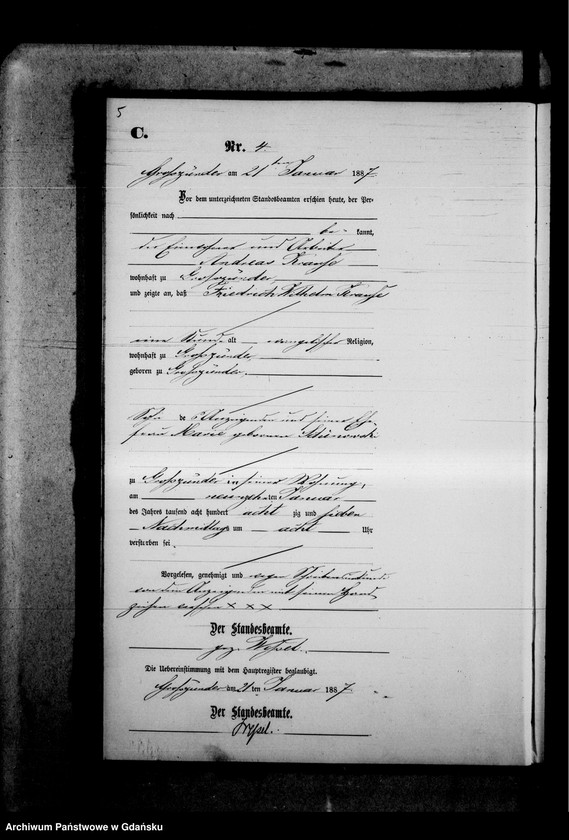 5
C.
Nr. 4.
Großzünder am 21 ten Januar 1887
Vor dem unterzeichneten Standesbeamten erschien heute, der Per-
sönlichkeit nach
be- kannt,
der Einwohner und Arbeiter
Andreas Krause
wohnhaft zu Großzünder
und zeigte an, daß Friedrich Wilhelm Krause
eine Stunde alt evangelischer Religion,
wohnhaft zu Großzünder
geboren zu Großzünder.
Sohn de s Anzeigenden und seiner Ehe-
frau Marie geborenen
zu Großzünder in seiner Wohnung,
am neunzehnten Januar
des Jahres tausend acht hundert acht zig und sieben
Nachmittags um acht Uhr
verstorben sei
Vorgelesen, genehmigt und wegen
von dem Anzeigenden mit seinem Hand-
zeichen versehen x x x
Der Standesbeamte.
gez. Wessel.
Die Uebereinstimmung mit dem Hauptregister beglaubigt.
Großzünder am 21 ten Januar 1887
Der Standesbeamte.
Wessel.
Archiwum Państwowe w Gdańsku